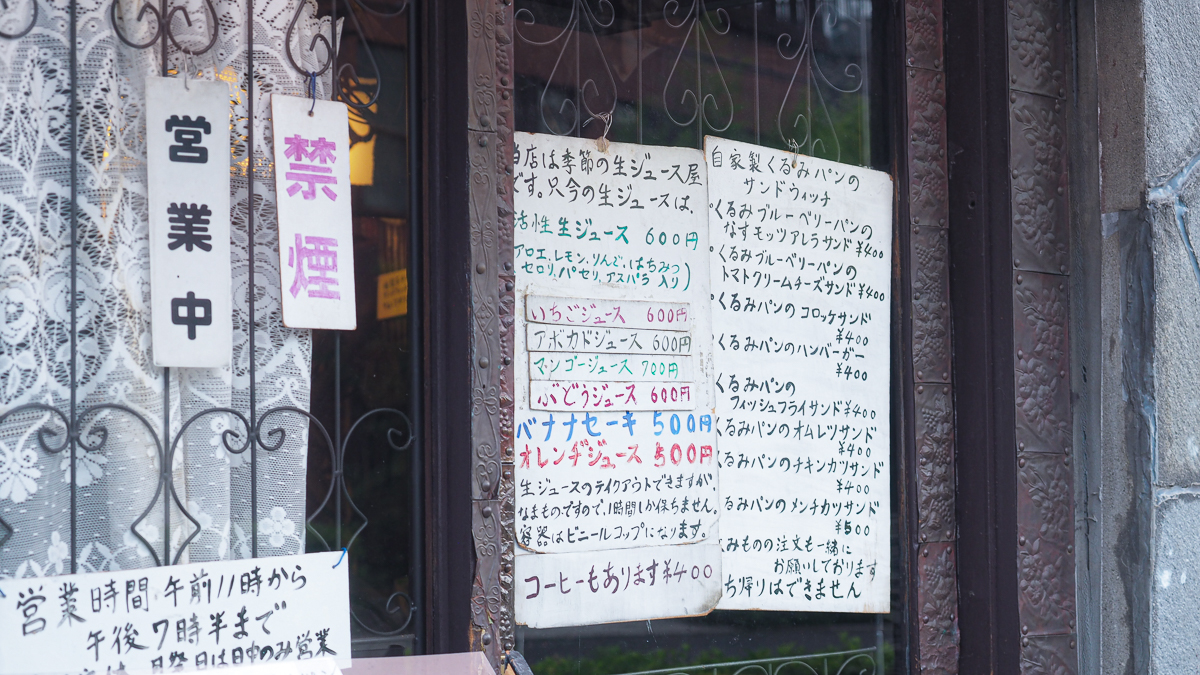 営業中
禁煙
当店は季節の生ジュース屋
です。只今の生ジュースは、
活性生ジュース 600円
(アロエ、レモン、りんご、はちみつ
セロリ、パセリ、アスパラ 入り)
いちごジュース 600円
アボカドジュース 600円
マンゴージュース 700円
ぶどうジュース 600円
バナナセーキ 500円
オレンヂジュース 500円
生ジュースのテイクアウトできますが、
なまものですので、1時間しか保ちません。
容器はビニールコップになります。
コーヒーもあります¥400
自家製くるみパンの
サンドウィッチ
°くるみブルーベリーパンの
なすモッツアレラサンド¥400
°くるみブルーベリーパンの
トマトクリームチーズサンド¥400
°くるみパンのコロッケサンド
¥400
くるみパンのハンバーガー
¥400
くるみパンの
フィッシュフライサンド¥400
くるみパンのオムレツサンド
¥400
くるみパンのチキンカツサンド
¥400
くるみパンのメンチカツサンド
¥500
みものの注文も一緒に
お願いしております
ち帰りはできません
営業時間 午前11時から
午後7時半まで
月祭日は日中のみ営業